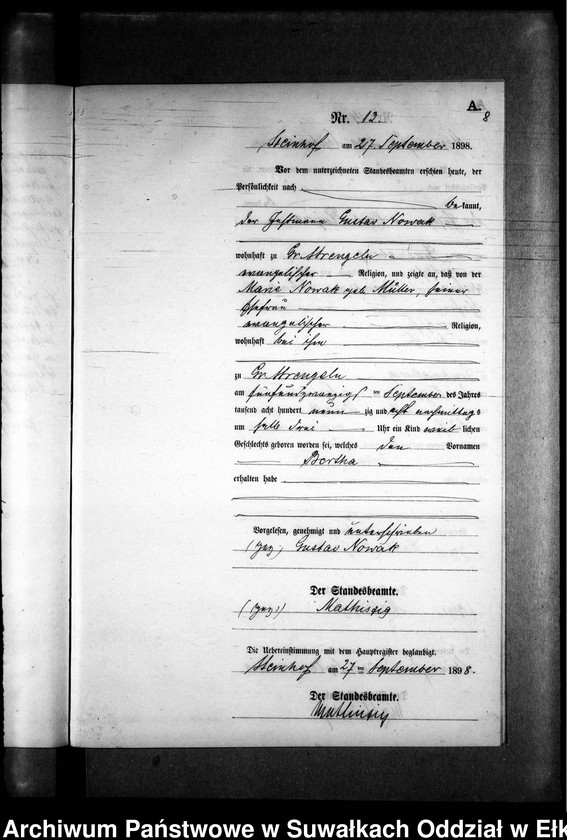 A.
8
Nr. 12.
Steinhof am 27. September 1898.
Vor dem unterzeichneten Standesbeamten erschien heute, der
Persönlichkeit nach
bekannt,
der Gustav Nowak
wohnhaft zu Gr. Strengeln
evangelischer Religion, und zeigte an, daß von der
Marie Nowak geb. Müller, seiner
Ehefrau
evangelischer Religion,
wohnhaft bei ihm
zu Gr. Strengeln
am fünfundzwanzigsten September des Jahres
tausend acht hundert neunzig und acht nachmittags
um halb drei Uhr ein Kind weiblichen
Geschlechts geboren worden sei, welches den Vornamen
Bertha
erhalten habe
Vorgelesen, genehmigt und unterschrieben
(gez.) Gustav Nowak
Der Standesbeamte.
(gez.) Mathiszig
Die Uebereinstimmung mit dem Hauptregister beglaubigt.
Steinhof am 27ten September 1898.
Der Standesbeamte.
Mathiszig
Archiwum Państwowe w Suwałkach Oddział w Ełk